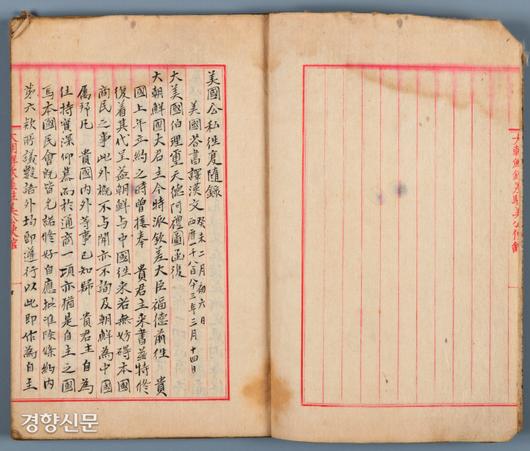 大朝鮮欽差駐美公使館
美國公私往復隨錄
美國荅書譯漢文 癸未二月初六日
西曆一千八百八十三年三月十四日
大美國伯理璽天德阿禮圖函復
大朝鮮國大君主今特派欽差大臣福德前往 貴
國上年立約之時曾接奉 貴君主來書並特修
復着其代呈並朝鮮與中國往來若無妨碍本國
商民之事此外概不与聞亦不詢及朝鮮為中國
屬邦凡 貴國內外等事已知歸 貴君主自為
住持實深仰慕而於通商一項亦猶是自主之國
焉本國民會既皆允諾修好自應批准除條約內
第六款所議數語外均即遵行以此即作為自主
경향신문